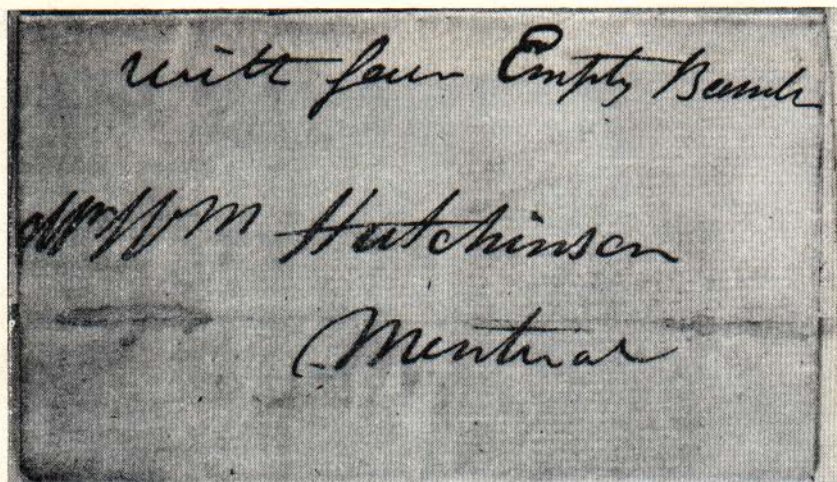 with four Empty Barrels
Wm Hutchinson
Montreal